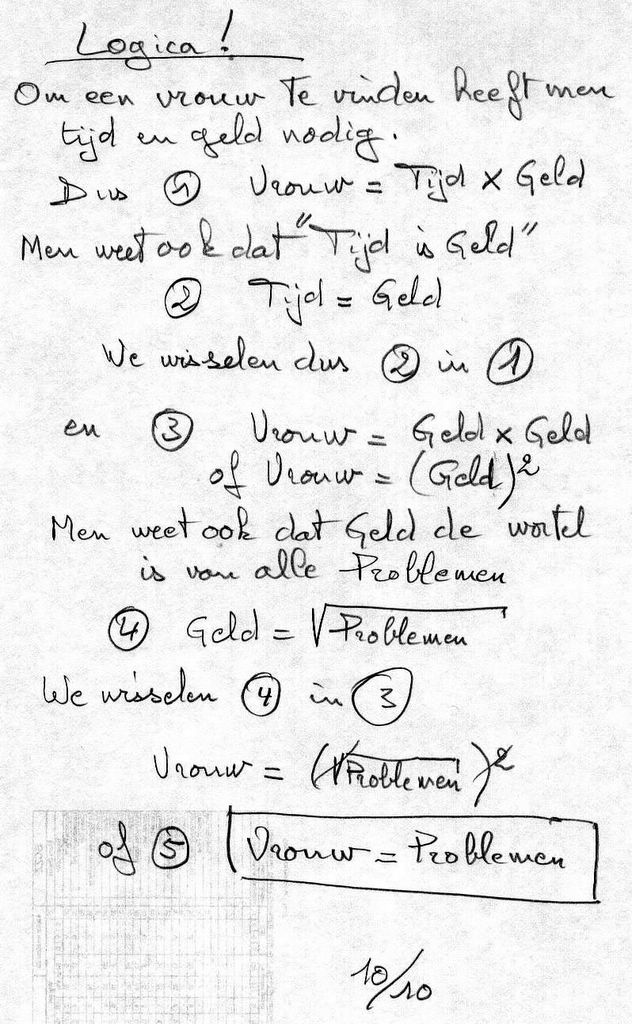 Logica!
Om een vrouw te vinden heeft men
tijd en geld nodig.
Dus ① Vrouw = Tijd x Geld
Men weet ook dat "Tijd is Geld"
② Tijd = Geld
We wisselen dus ② in ①
en ③ Vrouw = Geld x Geld
of Vrouw = (Geld)²
Men weet ook dat Geld de wortel
is van alle Problemen
④ Geld = √Problemen
We wisselen ④ in ③
Vrouw = (√Problemen)²
of ⑤ Vrouw = Problemen
10/10